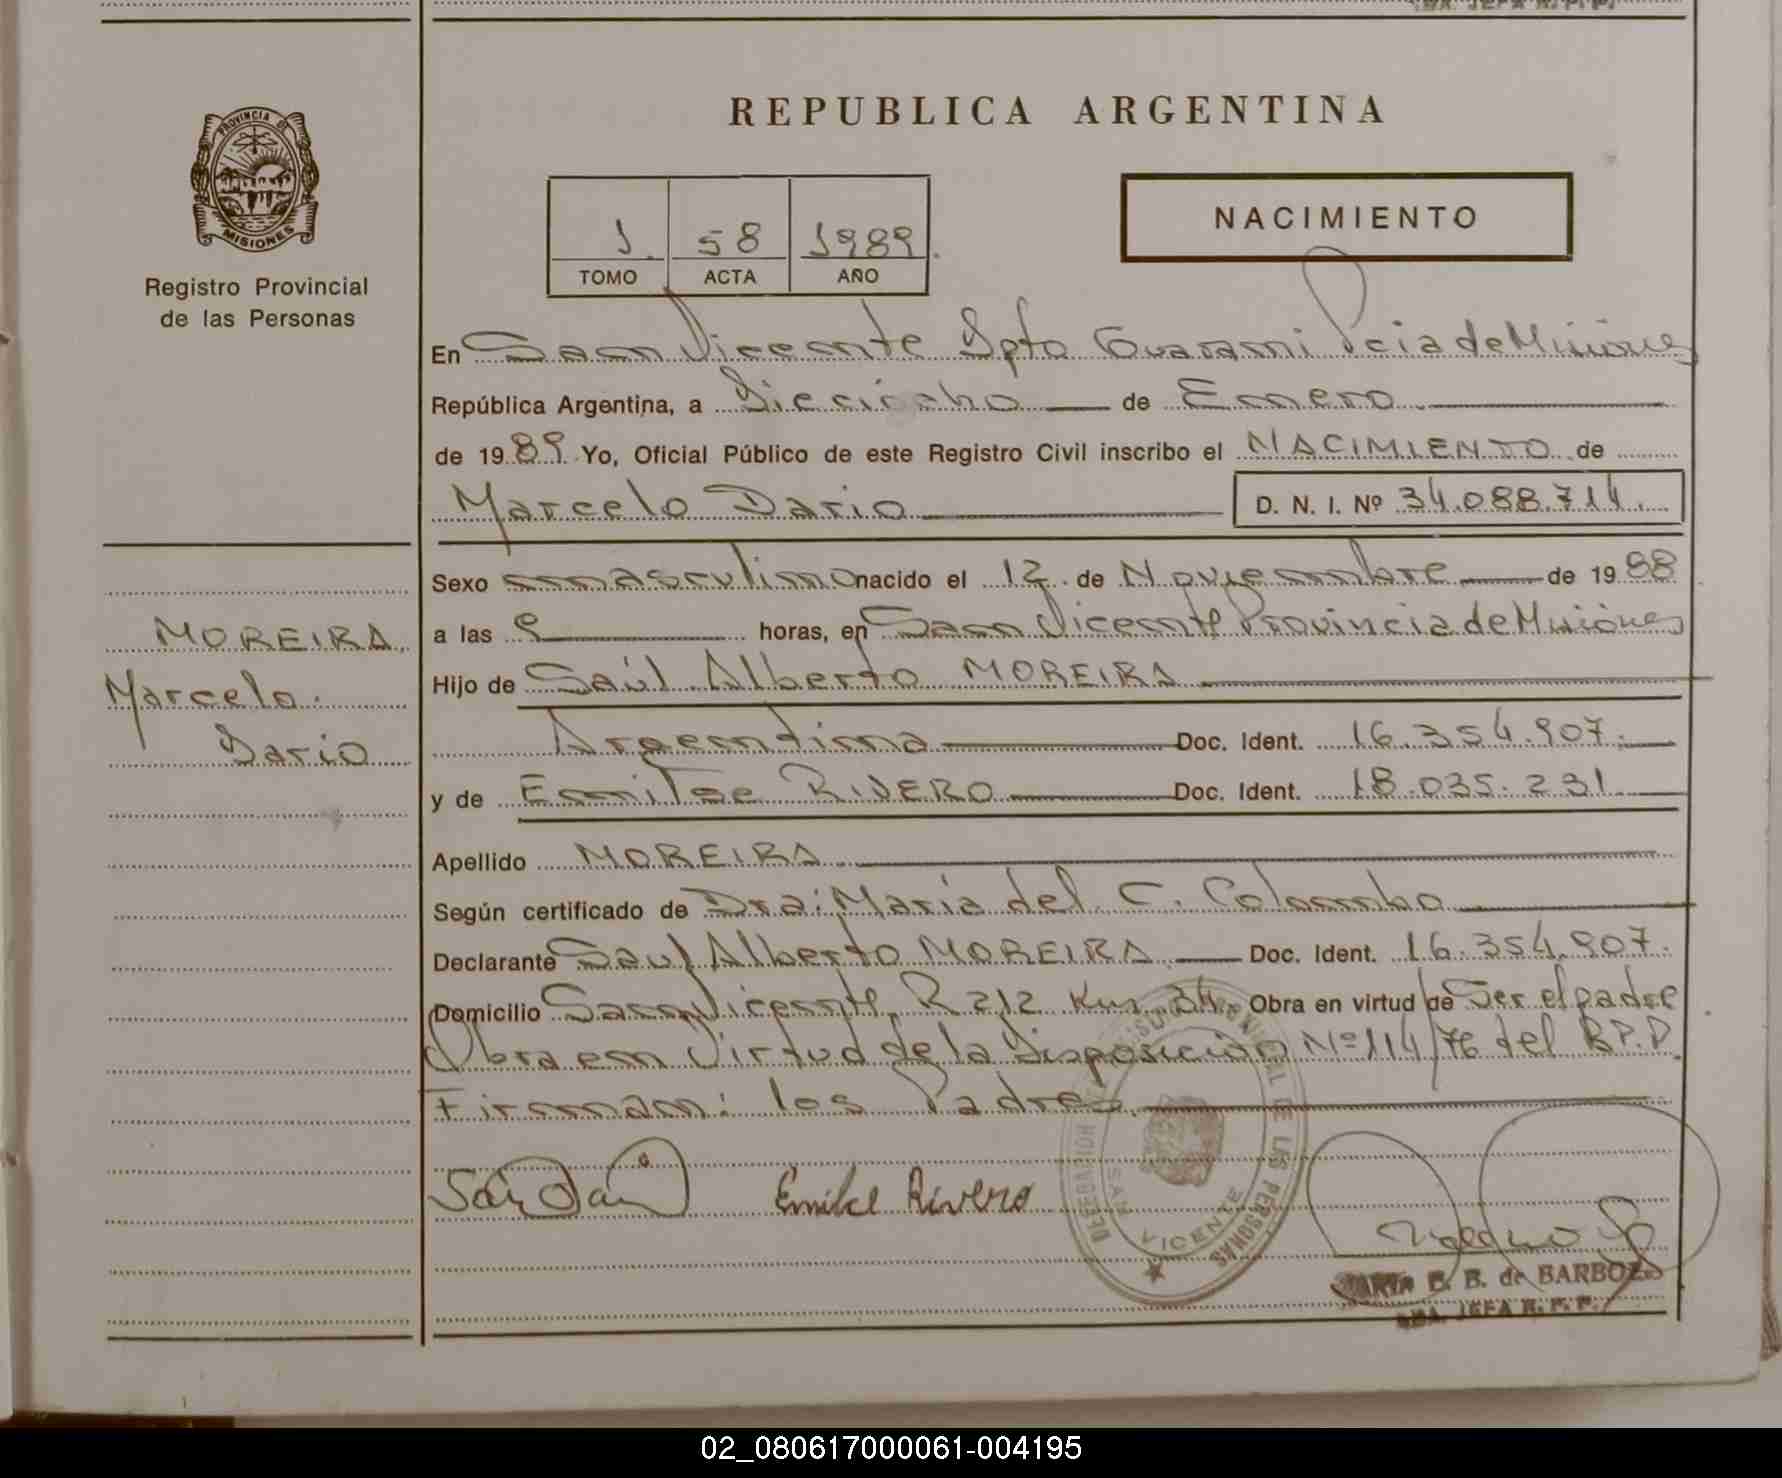 REPUBLICA ARGENTINA
PROVINCIA DE
MISIONES
Registro Provincial
de las Personas
NACIMIENTO
1. 58 1989
TOMO ACTA AÑO
En San Vicente Dpto Guarani Pcia de Misiones
República Argentina, a Dieciocho de Enero
de 1989 Yo, Oficial Público de este Registro Civil inscribo el NACIMIENTO de
Marcelo Dario D. N. I. Nº 34.088.714.
MOREIRA,
Marcelo
Dario
Sexo masculino nacido el 12 de Noviembre de 1988
a las 9 horas, en San Vicente Provincia de Misiones
Hijo de Saúl Alberto MOREIRA
Argentina Doc. Ident. 16.354.907.
y de RIVERO Doc. Ident. 18.035.231
Apellido MOREIRA
Según certificado de Dra: María del C. Colombo
Declarante Saul Alberto MOREIRA Doc. Ident. 16.354.907.
Domicilio San Vicente, R 212 Km. 34. Obra en virtud de Ser el padre
Obra en Virtud de la Disposición Nº 114/76 del R.P.P.
Firman: los Padres
Rivero
SAN VICENTE
DE LAS PERSONAS
B. B. de BARBOZA
JEFA R. P. P.
02_080617000061-004195